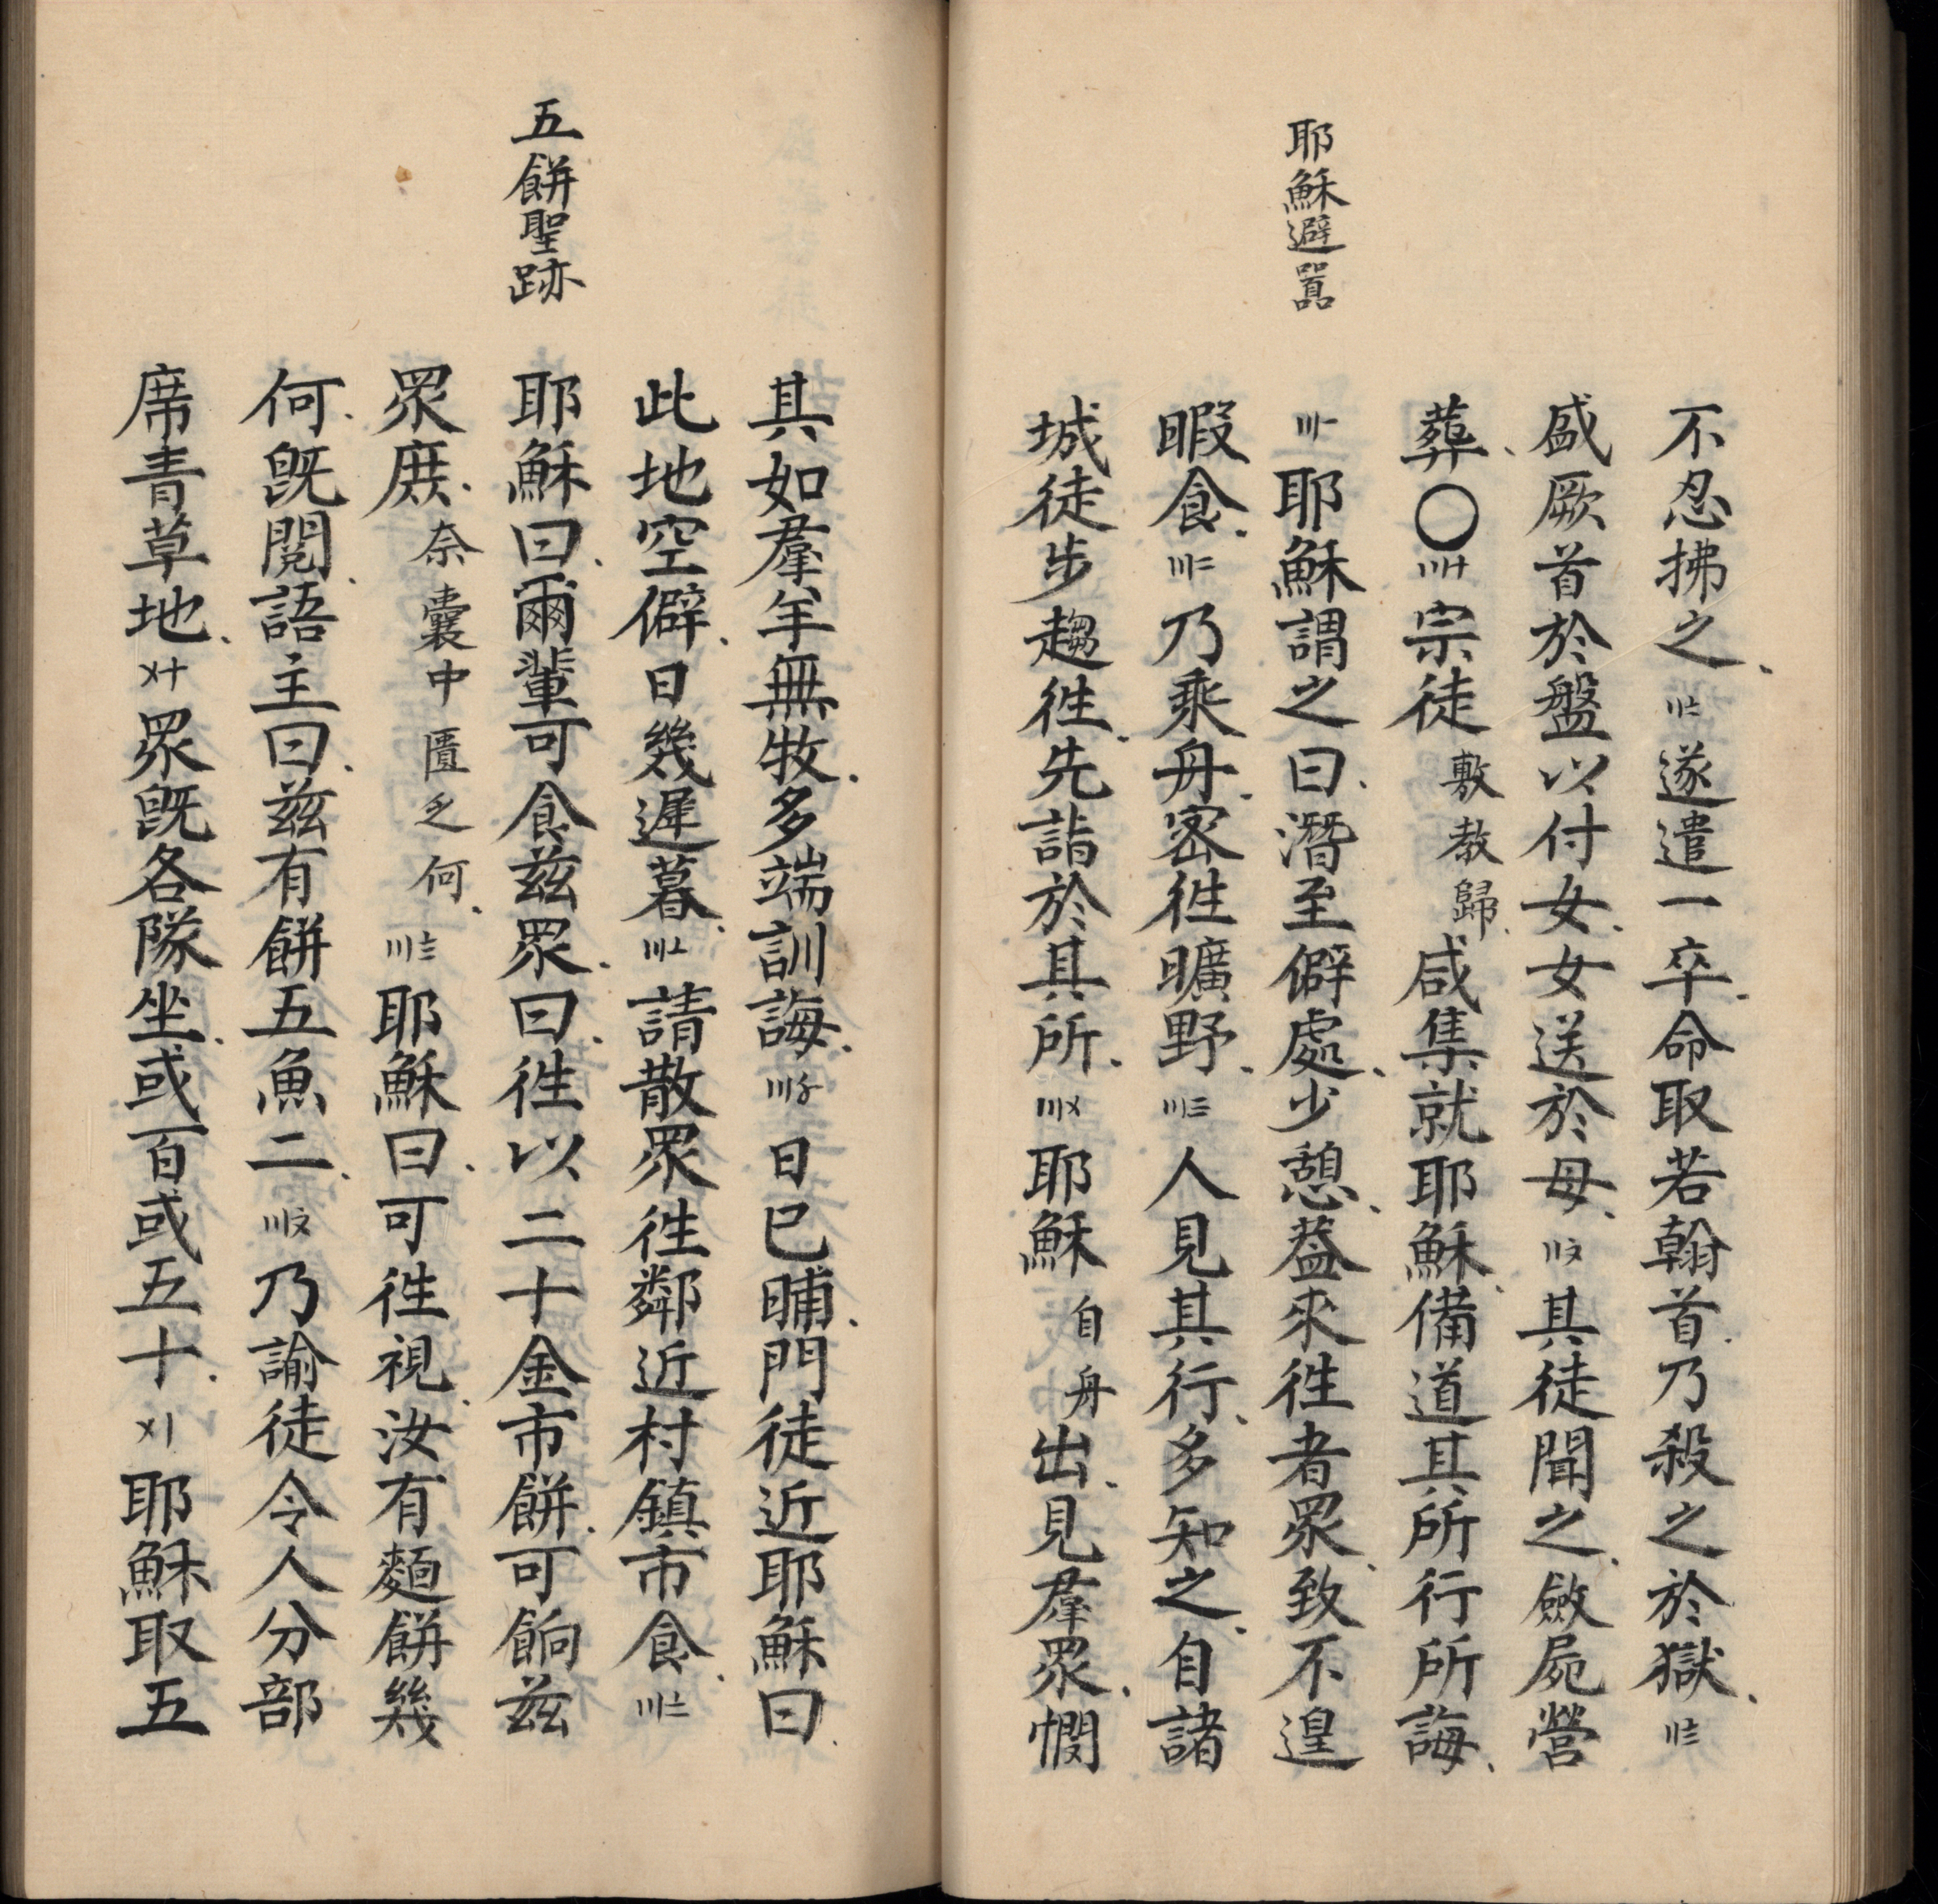 耶穌避囂
不忍拂之、〢〧遂遣一卒、命取若翰首、乃殺之於獄、〢〨
盛厥首於盤以付女、女送於母、〢〩其徒聞之、斂屍營
葬、〇〣十宗徒敷教歸、咸集就耶穌、備道其所行所誨、
〣一耶穌謂之曰、潛至僻處、少憩、蓋來徃者眾、致不遑
暇食、〣二乃乘舟、密徃曠野、〣三人見其行、多知之、自諸
城徒步趨徃、先詣於其所、〣〤耶穌自舟出、見羣眾、憫
五餅聖跡
其如羣羊無牧、多端訓誨、〣〥日已晡、門徒近耶穌曰、
此地空僻、日幾遲暮、〣〦請散眾徃鄰近村鎮市食、〣〧
耶穌曰、爾輩可食茲眾、曰、徃以二十金市餅、可餉茲
眾庶、奈囊中匱乏何、〣〨耶穌曰、可徃視、汝有麵餅幾
何、既閱、語主曰、茲有餅五魚二、〣〩乃諭徒令人分部
席青草地、〤十眾既各隊坐、或百或五十、〤〡耶穌取五